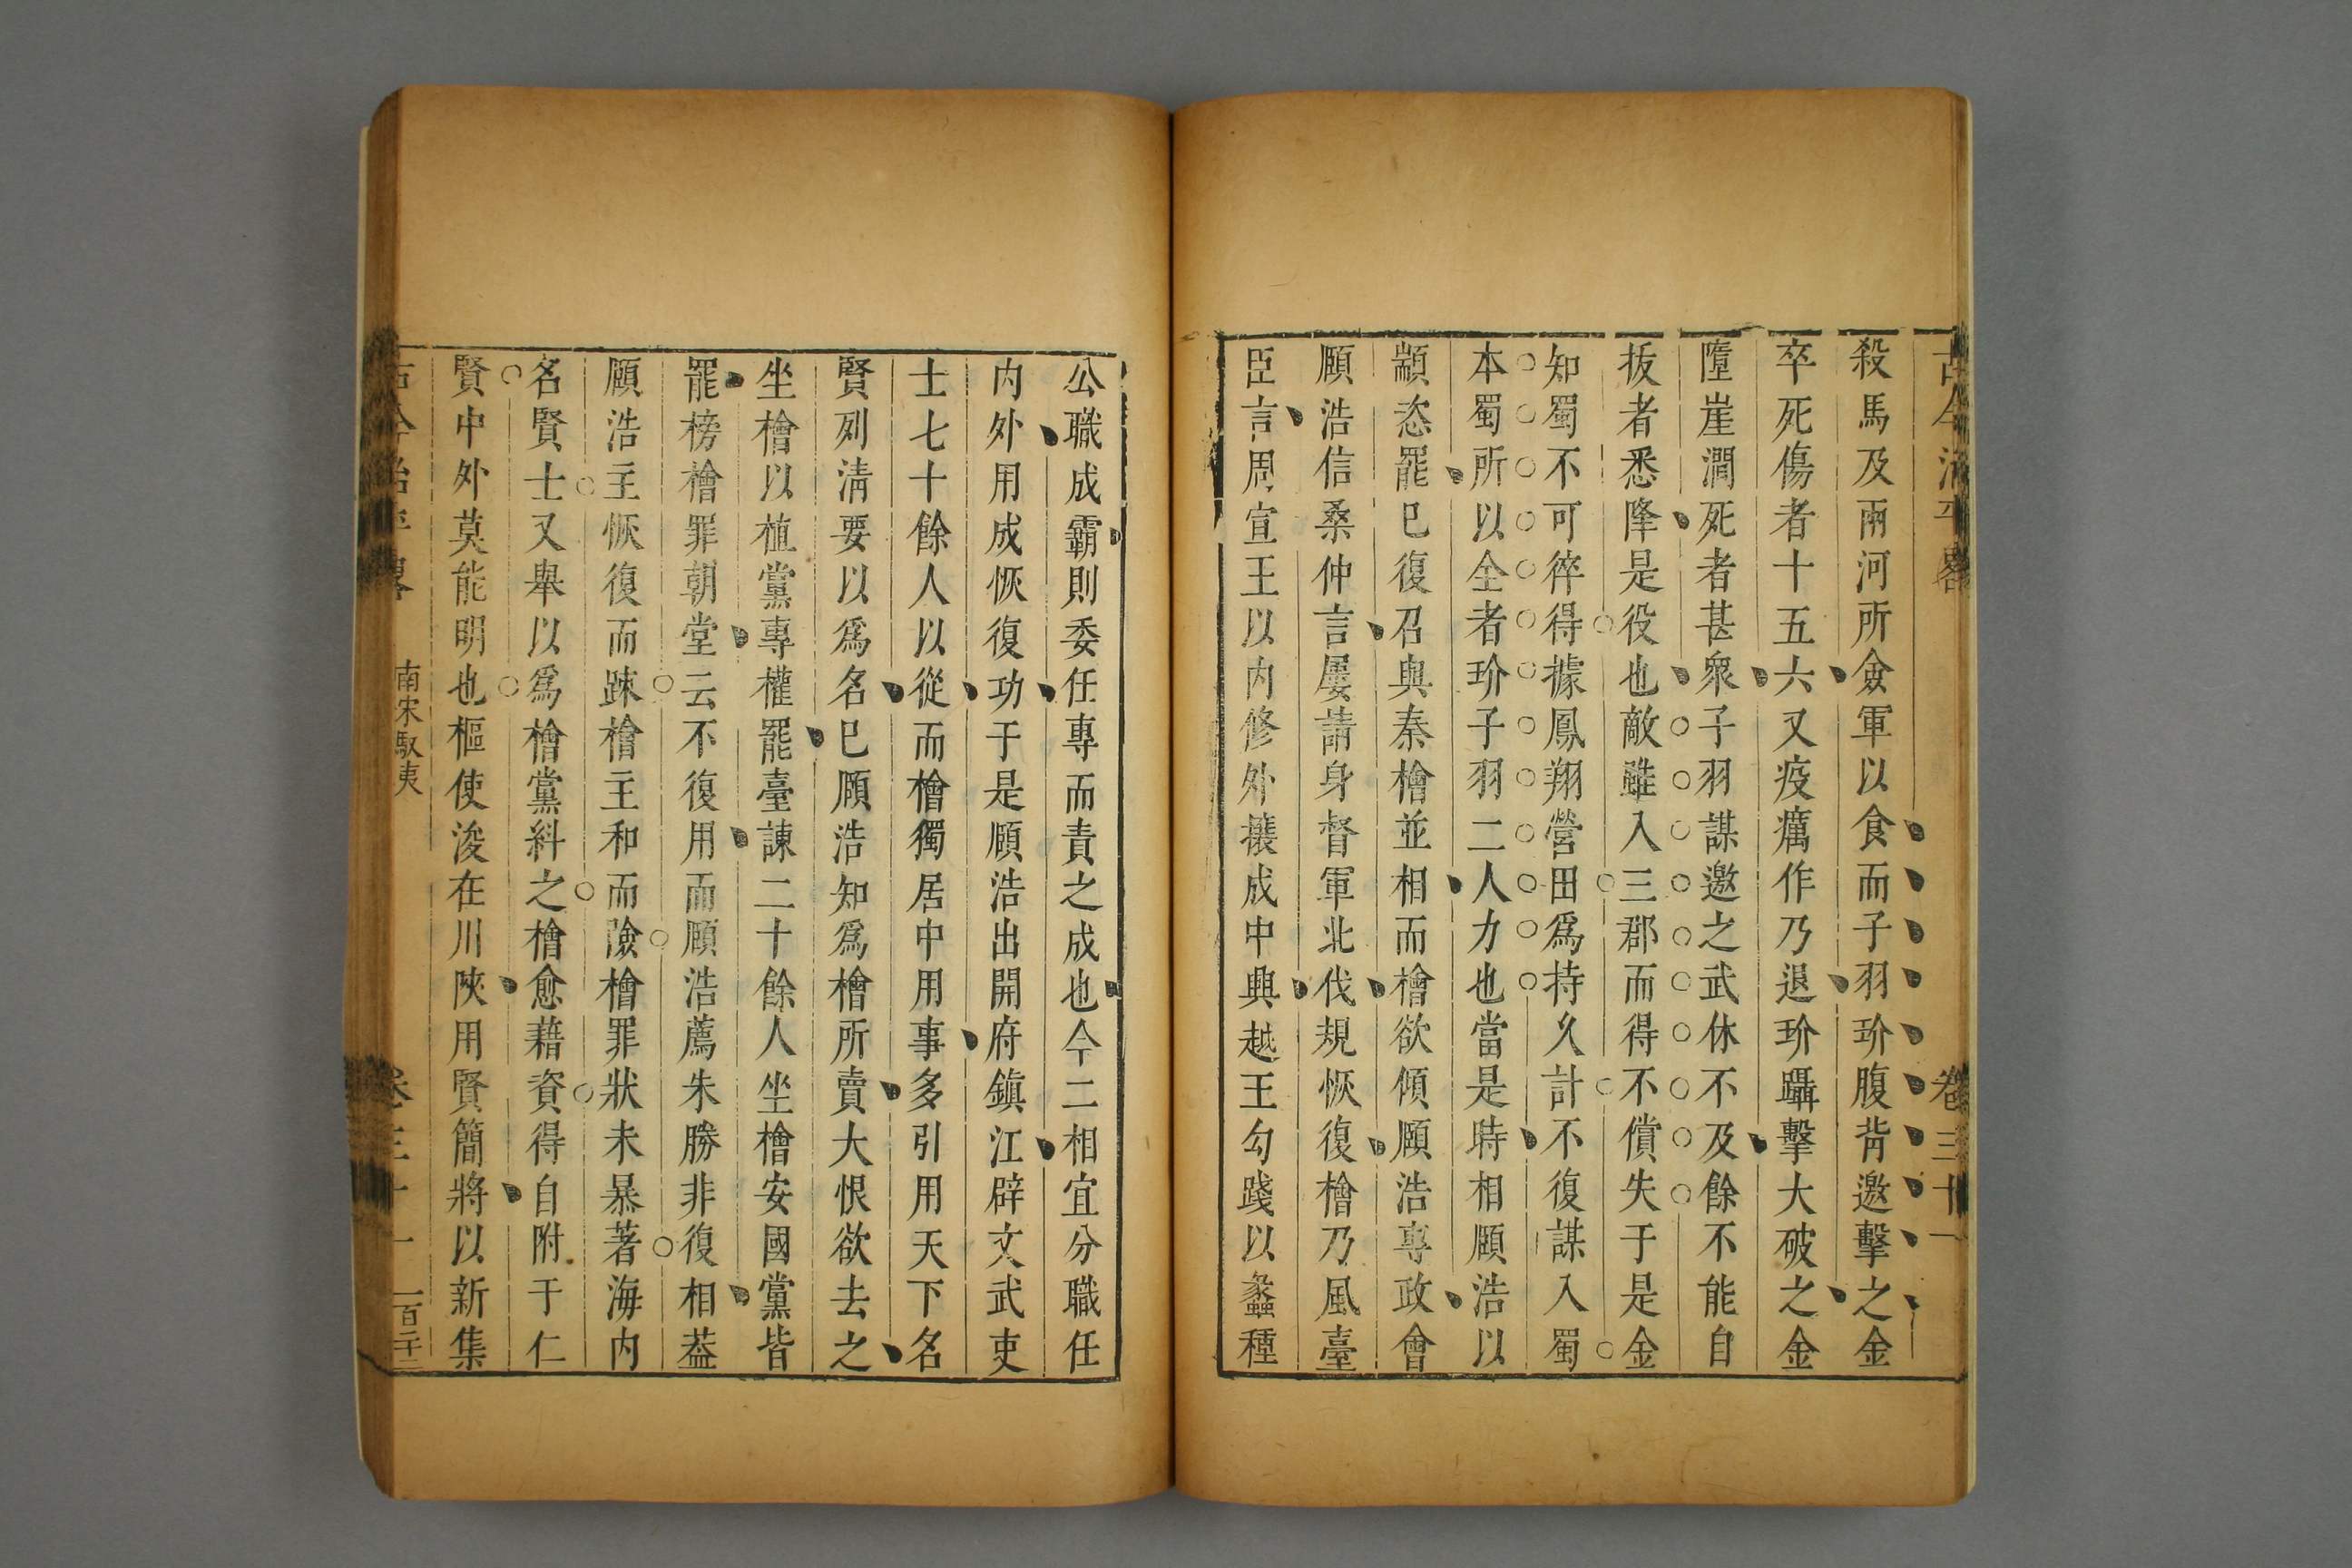 古今治平畧 卷三十一
殺馬及兩河所僉軍以食而子羽玠腹背邀擊之金
卒死傷者十五六又疫癘作乃退玠躡擊大破之金
墮崖澗死者甚衆子羽謀邀之武休不及餘不能自
拔者悉降是役也敵雖入三郡而得不償失于是金
知蜀不可猝得據鳳翔營田爲持久計不復謀入蜀
本蜀所以全者玠子羽二人力也當是時相頤浩以
顓恣罷已復召與秦檜並相而檜欲傾頤浩專政會
頤浩信桑仲言屢請身督軍北伐規恢復檜乃風臺
臣言周宣王以内修外攘成中興越王勾踐以蠡種
公職成霸則委任專而責之成也今二相宜分職任
内外用成恢復功于是頤浩出開府鎮江辟文武吏
士七十餘人以從而檜獨居中用事多引用天下名
賢列淸要以爲名已頤浩知爲檜所賣大恨欲去之
坐檜以植黨專權罷臺諫二十餘人坐檜安國黨皆
罷榜檜罪朝堂云不復用而頤浩薦朱勝非復相葢
頤浩主恢復而踈檜主和而險檜罪狀未暴著海内
名賢士又舉以爲檜黨糾之檜愈藉資得自附于仁
賢中外莫能明也樞使浚在川陝用賢簡將以新集
古今治平畧 南宋馭夷 卷三十一